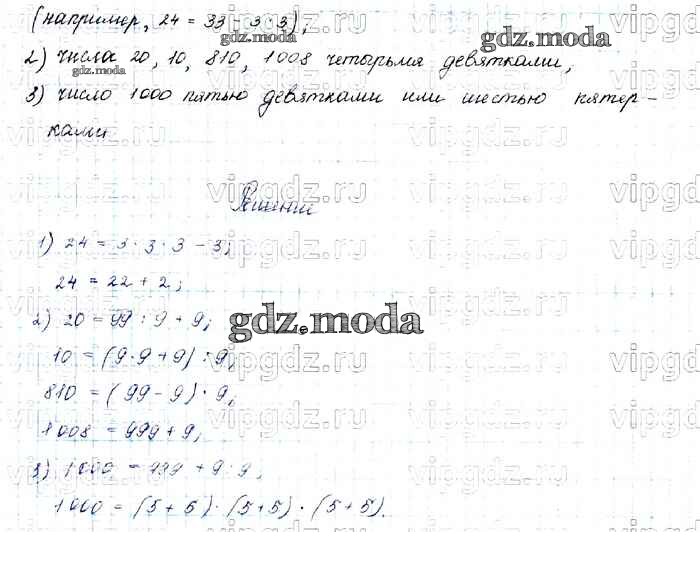 (например, 24 = 33 - 3 · 3);
2) числа 20, 10, 810, 1008 четырьмя девятками;
3) число 1000 пятью девятками или шестью пятер-
ками
Решение
1) 24 = 3 · 3 · 3 - 3;
24 = 22 + 2;
2) 20 = 99 : 9 + 9;
10 = (9 · 9 + 9) : 9;
810 = (99 - 9) · 9;
1008 = 999 + 9;
3) 1000 = 999 + 9 : 9;
1000 = (5 + 5) · (5 + 5) · (5 + 5).
gdz.moda
gdz.moda
gdz.moda
vipgdz.ru